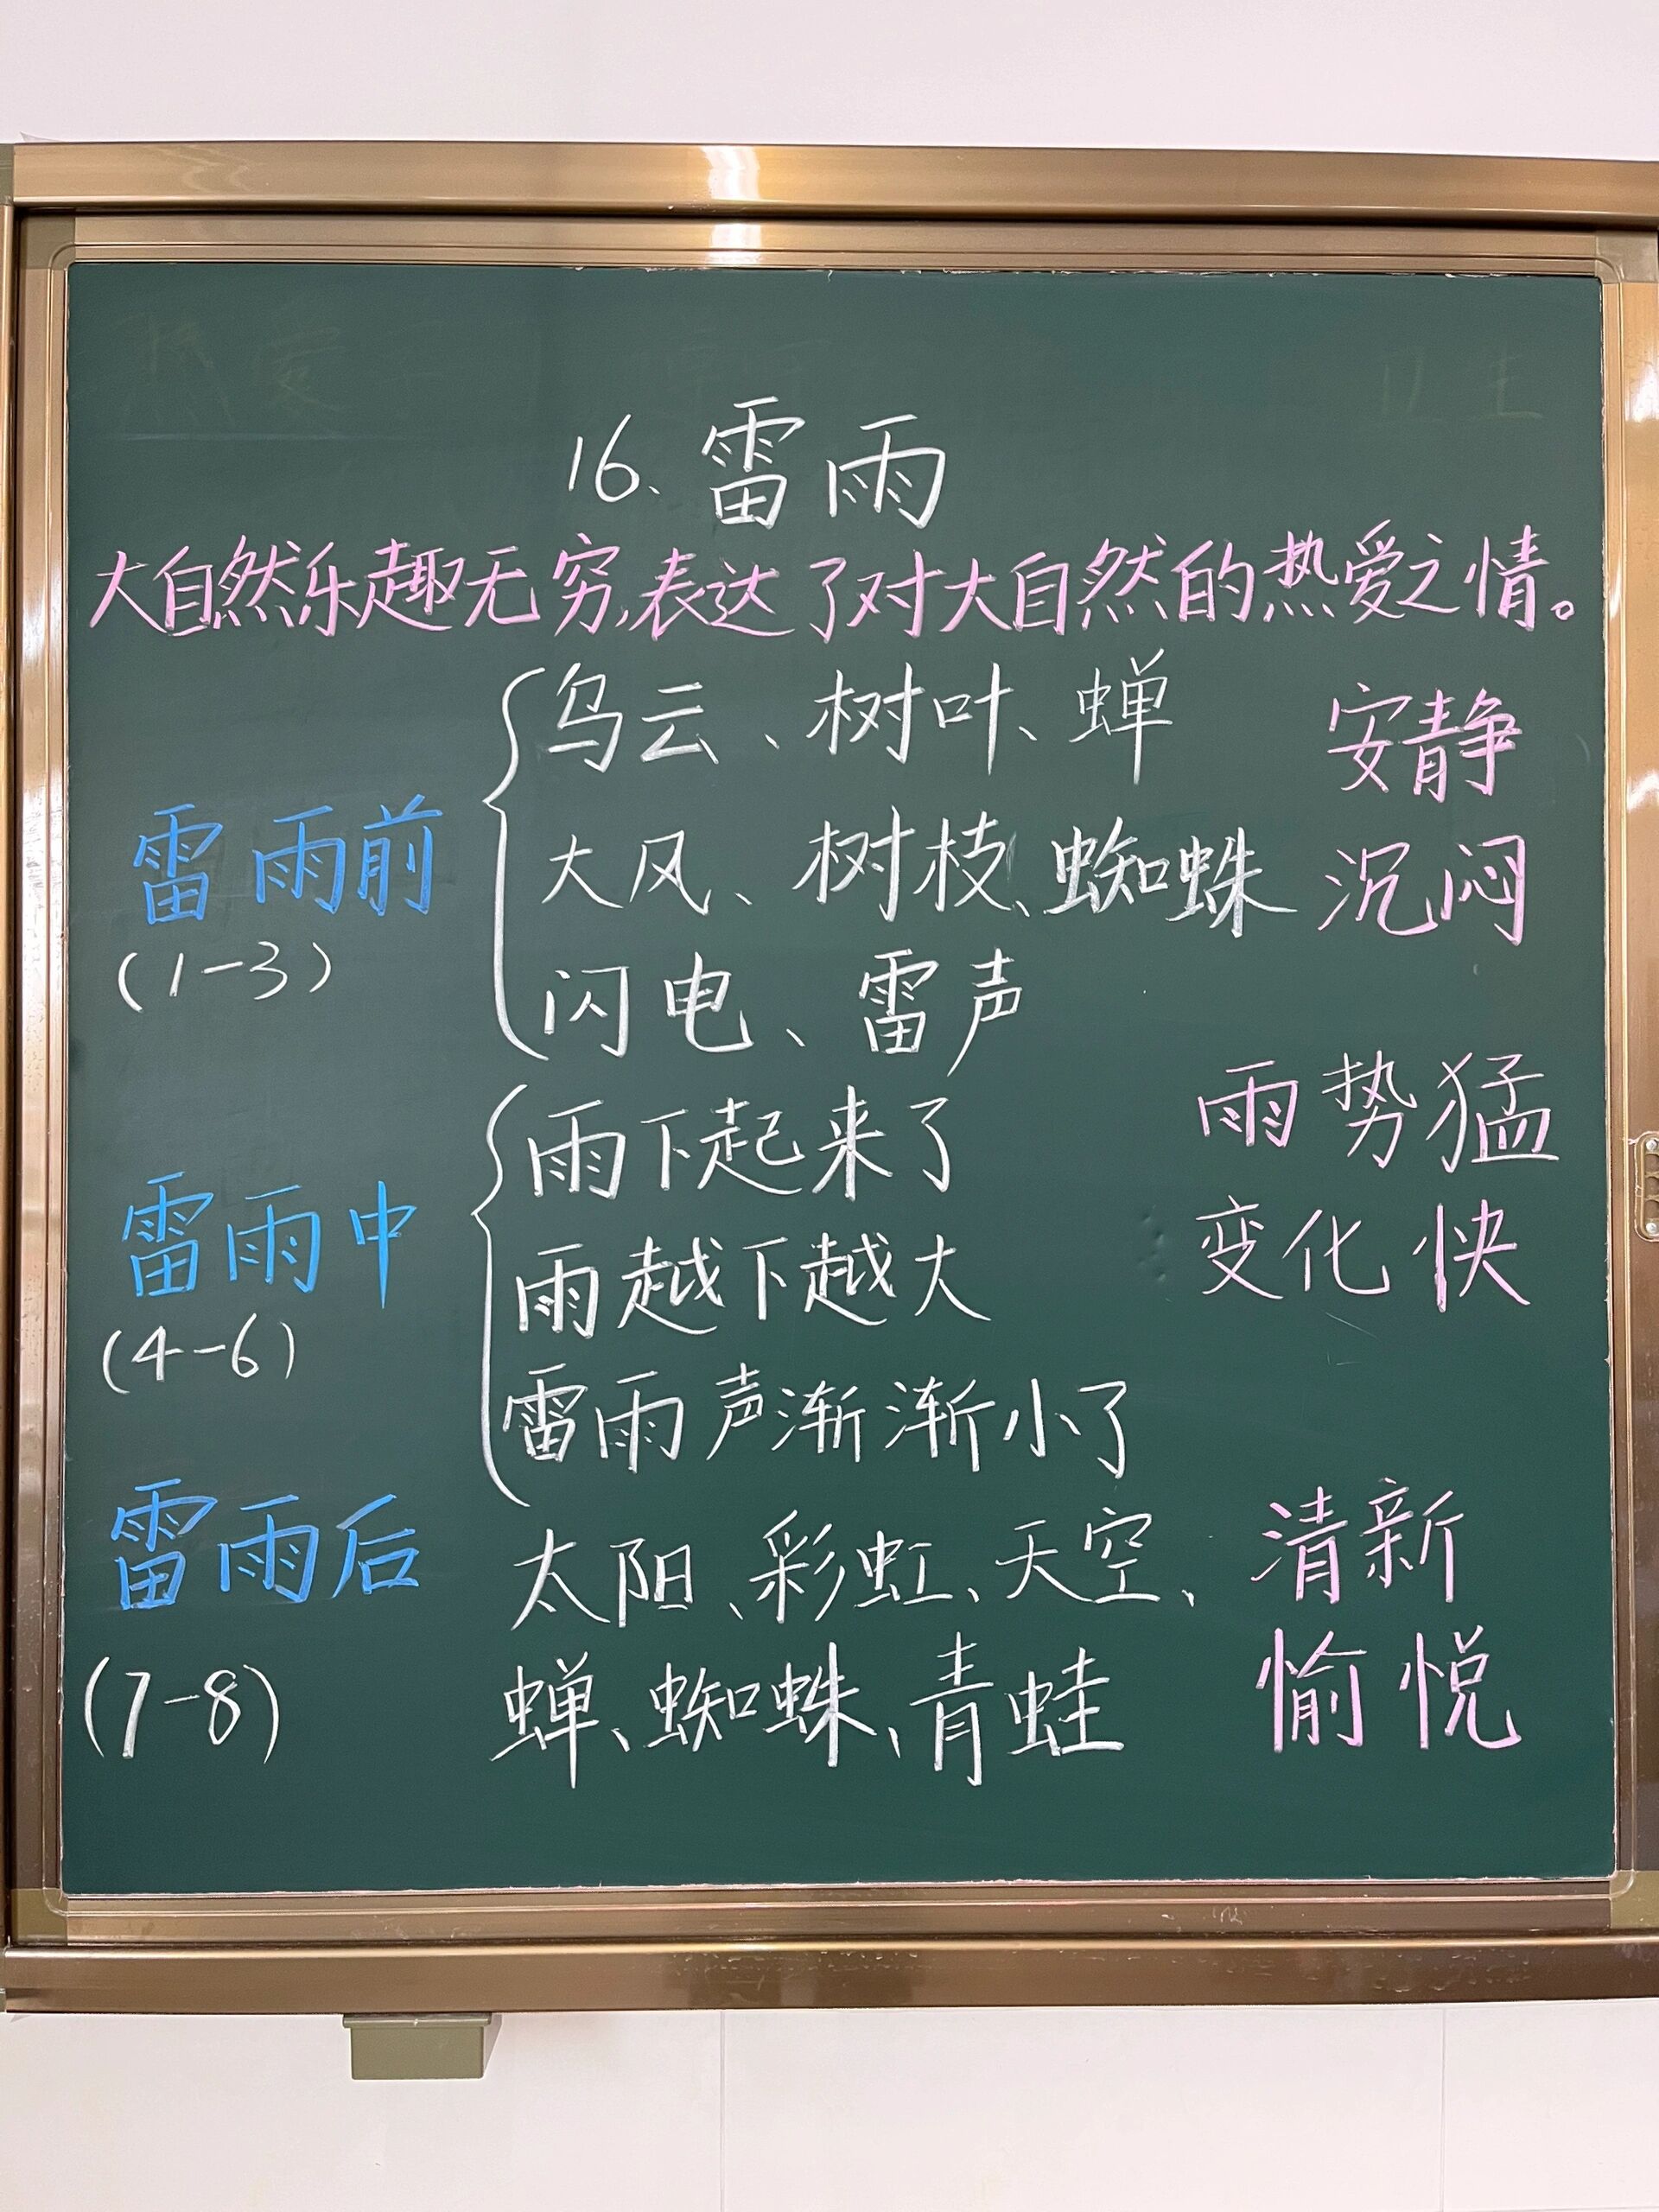 16、雷雨
大自然乐趣无穷,表达了对大自然的热爱之情。
雷雨前
(1-3)
乌云、树叶、蝉
大风、树枝、蜘蛛
闪电、雷声
安静
沉闷
雷雨中
(4-6)
雨下起来了
雨越下越大
雷雨声渐渐小了
雨势猛
变化快
雷雨后
(7-8)
太阳、彩虹、天空、
蝉、蜘蛛、青蛙
清新
愉悦